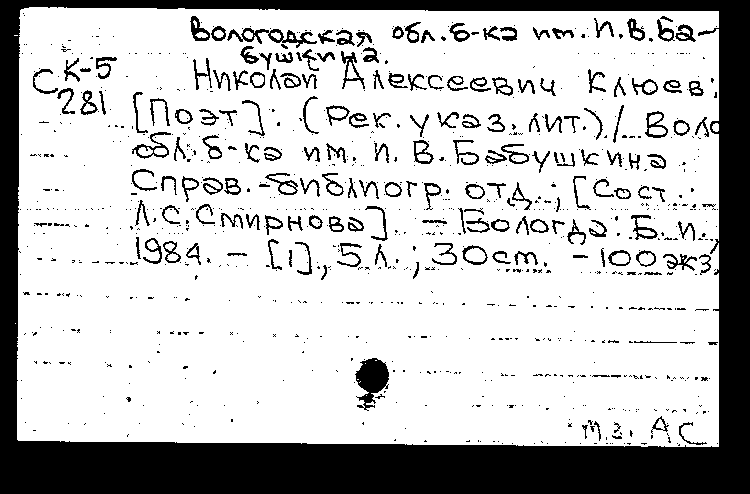 Вологодская обл. б-ка им. И.В. Ба-
бушкина.
К-5
С 281
Николай Алексеевич Клюев:
[Поэт]: (Рек. указ. лит.) / Воло
обл. б-ка им. И. В. Бабушкина.
Справ.-библиогр. отд.; [Сост.:
Л.С. Смирнова]. – Вологда: Б. и.,
1984. – [1], 5 л.; 30 см. – 100 экз.
м.з. АС